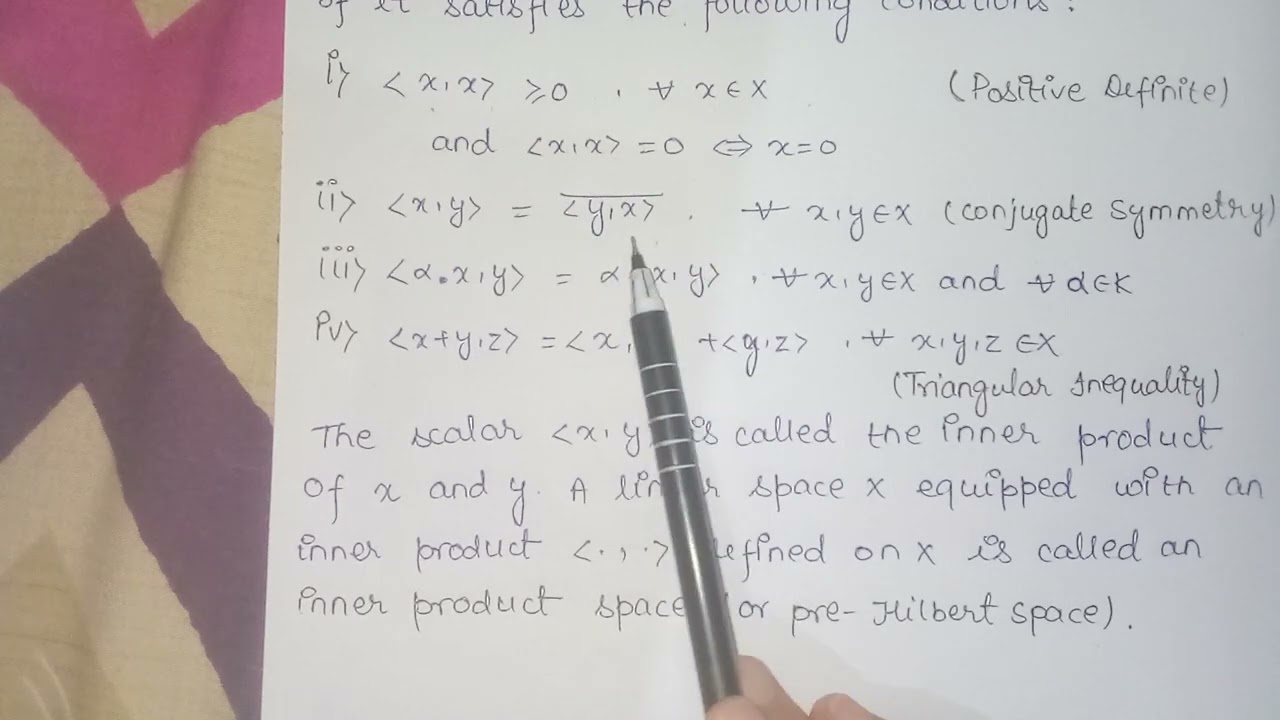 of it satisfies the following conditions:
i> <x,x> ≥0 , ∀ x∈X (Positive Definite)
and <x,x> =0 ⇔ x=0
ii> <x,y> = \overline{<y,x>} . ∀ x,y∈X (conjugate symmetry)
iii> <α.x,y> = α x,y> , ∀ x,y∈X and ∀ α∈K
iv> <x+y,z> =<x, +<y,z> , ∀ x,y,z ∈X
(Triangular Inequality)
The scalar <x,y is called the inner product
of x and y. A space X equipped with an
inner product <.,.> defined on X is called an
inner product space (or pre-Hilbert space).